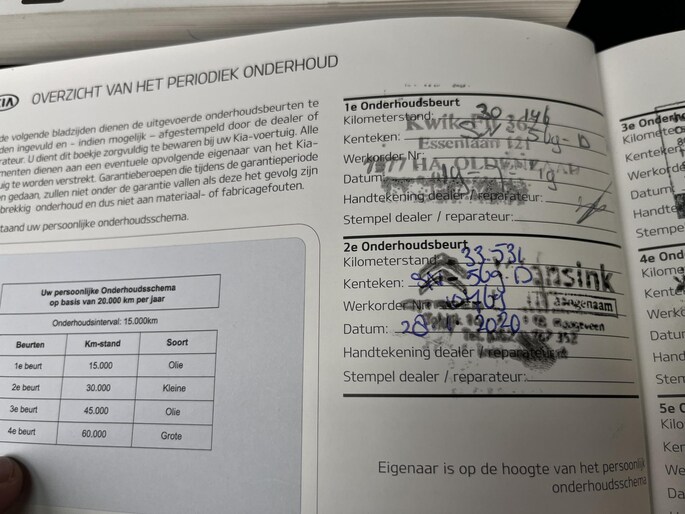 KIA OVERZICHT VAN HET PERIODIEK ONDERHOUD
de volgende bladzijden dienen de uitgevoerde onderhoudsbeurten te
den ingevuld en - indien mogelijk – afgestempeld door de dealer of
rateur. U dient dit boekje zorgvuldig te bewaren bij uw Kia-voertuig. Alle
menten dienen aan een eventuele opvolgende eigenaar van het Kia-
uig te worden verstrekt. Garantieberoepen die tijdens de garantieperiode
n gedaan, zullen niet onder de garantie vallen als deze het gevolg zijn
brekkig onderhoud en dus niet aan materiaal- of fabricagefouten.
taand uw persoonlijke onderhoudsschema.
Uw persoonlijke Onderhoudsschema
op basis van 20.000 km per jaar
Onderhoudsinterval: 15.000km
Beurten Km-stand Soort
1e beurt 15.000 Olie
2e beurt 30.000 Kleine
3e beurt 45.000 Olie
4e beurt 60.000 Grote
1e Onderhoudsbeurt
Kilometerstand: 30.146
Kenteken: 569-D
Kwik
Essenlaan 121
Werkorder Nr:
Datum:
Handtekening dealer / reparateur:
Stempel dealer / reparateur:
2e Onderhoudsbeurt
Kilometerstand 33.531
Kenteken: 569 D
Werkorder Nr:
aangenaam
Datum: 2020
Hoogeveen
Handtekening dealer / reparateur:
Stempel dealer / reparateur:
Eigenaar is op de hoogte van het persoonlijk
onderhoudsschema
3e Onderh
Kilomete
Kenteken
Werkorde
Datum:
Handte
Stempe
4e Ond
Kilome
Kente
Werko
Datur
Hand
Stem
5e O
Kilo
Ker
We
Da
Ha
St